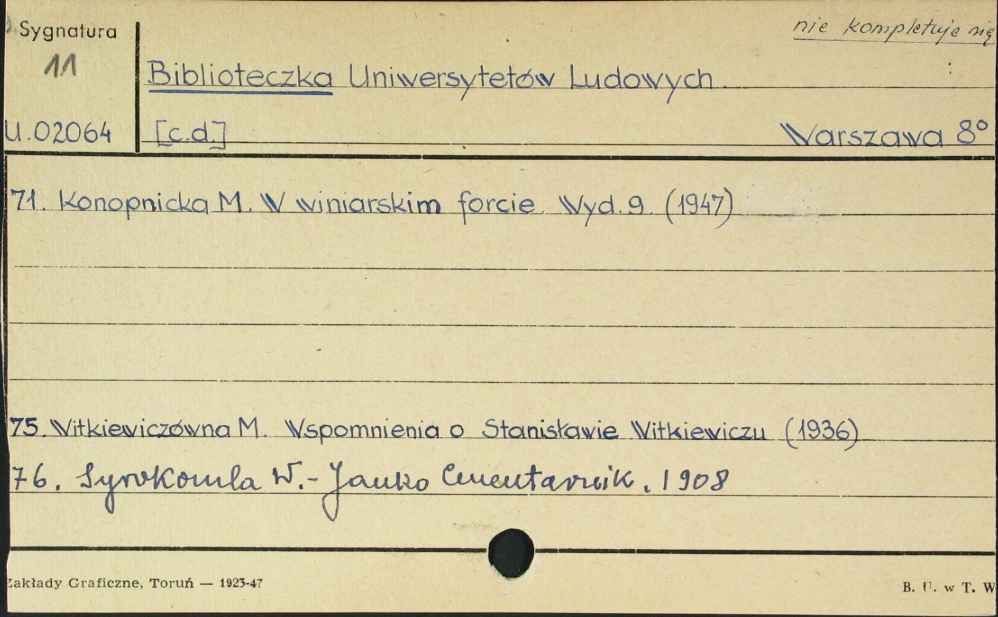 Sygnatura
nie kompletuje się
11
Biblioteczka Uniwersytetów Ludowych
U.02064 [c.d.] Warszawa 8°
71. Konopnicka M. W winiarskim forcie Wyd. 9. (1947)
75. Witkiewiczówna M. Wspomnienia o Stanisławie Witkiewiczu (1936)
76. Syrokomla W. - Janko Cmentarnik. 1908
Zakłady Graficzne, Toruń — 1923-47
B. U. w T. W